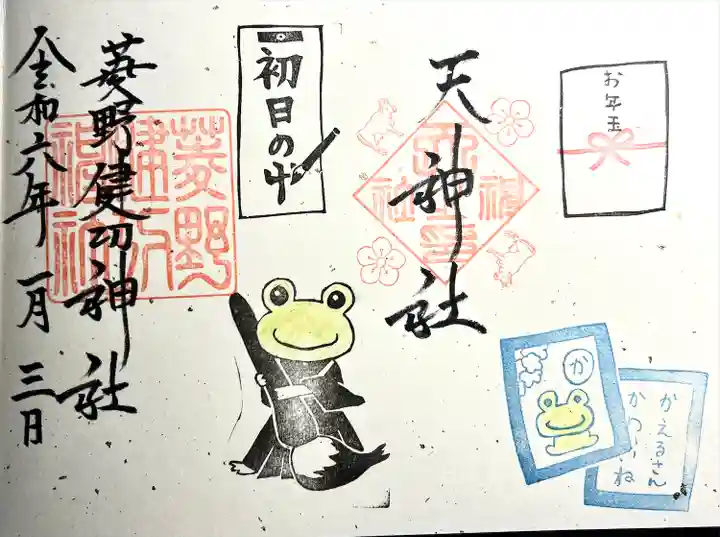 お年玉
天神社
初日の出
菱野健功神社
令和六年一月三日
菱野
健功
神社
か
かえるさん
かわいいね